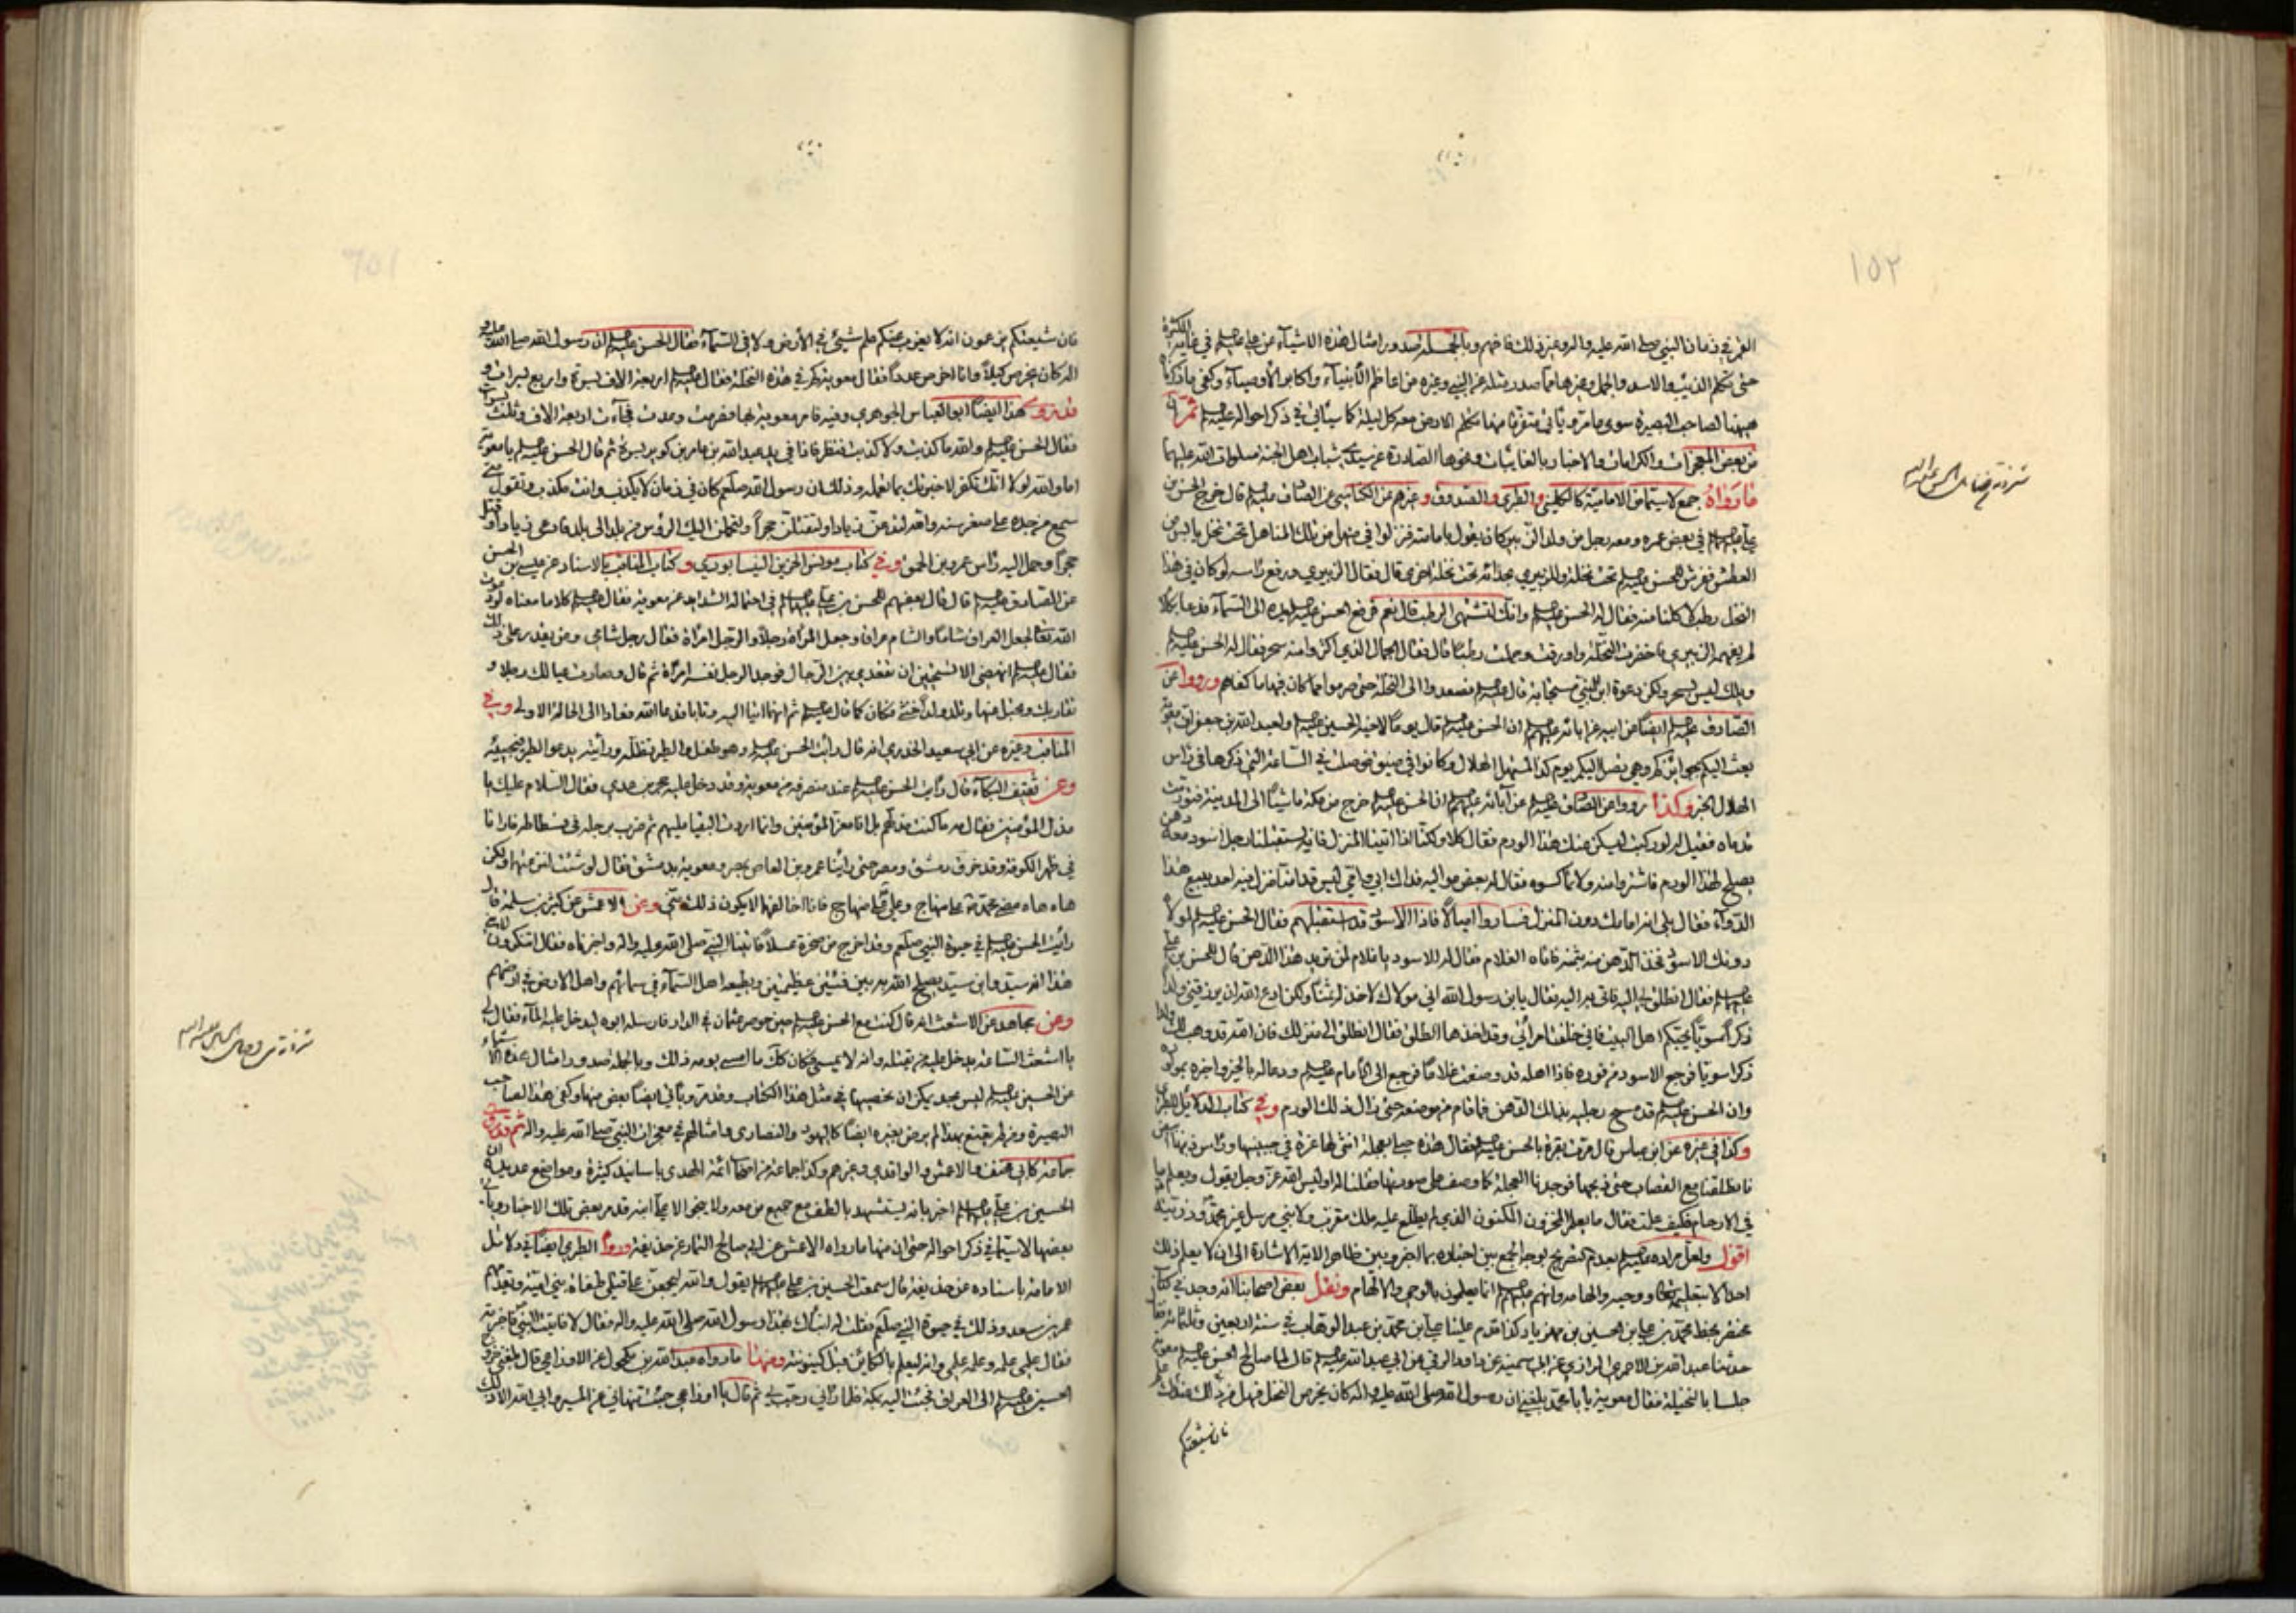 ١٥٢
القمر في زمان النبي صلى الله عليه واله وغير ذلك فافهم وبالجملة صدور امثال هذه الاشياء عن علي عليه السلام في غاية الكثرة
حتى تكلم الذئب والاسد والجمل وغيرها مما صدر مثله عن النبي وغيره من اعاظم الأنبياء واكابر الأوصياء وكفى ما ذكرناه
ههنا لصاحب البصيرة سوى ما مر ويأتي متفرقا منها تكلم الارض معه كل ليلة كما سيأتي في ذكر احواله عليه السلام ثم
من بعض المعجزات والكرامات والاخبار بالغائبات ونحوها الصادرة عن سيدي شباب اهل الجنة صلوات الله عليهما
مارواه جمع لاسيما من الامامية كالكليني والطبري والصدوق وغيرهم عن الكناسي عن الصادق عليه السلام قال خرج الحسن بن
علي عليهم السلام في بعض عمره ومعه رجل من ولد الزبير كان يقول بامامته فنزلوا في منهل من تلك المناهل تحت نخل يابس من
العطش ففرش للحسن عليه السلام تحت نخلة وللزبيري بحذائه تحت نخلة اخرى قال فقال الزبيري ورفع رأسه لو كان في هذا
النخل رطب لاكلنا منه فقال له الحسن عليه السلام وانك لتشتهي الرطب قال نعم فرفع الحسن عليه السلام يده الى السماء فدعا بكلام
لم يفهمه الزبيري فاخضرت النخلة واورقت وحملت رطبا قال فقال الجمال الذي اكتروا منه سحر فقال له الحسن عليه السلام
ويلك ليس بسحر ولكن دعوة ابن النبي مستجابة قال عليه السلام فصعدوا الى النخلة حتى صرموا مما كان فيها ما كفاهم ورووا عن
الصادق عليه السلام ايضا عن ابيه عن ابائه عليهم السلام ان الحسن عليه السلام قال يوما لاخيه الحسين عليه السلام ولعبد الله بن جعفر ان معوية
بعث اليكم بجوائزكم وهي تصل اليكم يوم كذا المستهل الهلال وكانوا في ضيق فوصلت في الساعة التي ذكرها في راس
الهلال الخبر وكذا رووا عن الصادق عليه السلام عن آبائه عليهم السلام ان الحسن عليه السلام خرج من مكة ماشيا الى المدينة فتورمت
قدماه فقيل له لو ركبت ليسكن عنك هذا الورم فقال كلا ولكنا اذا اتينا المنزل فانه يستقبلنا رجل اسود معه دهن
يصلح لهذا الورم فاشتروا منه ولا تماكسوه فقال له بعض مواليه فداك ابي وامي ليس قدامنا منزل فيه احد يبيع هذا
الدواء فقال بلى انه امامك دون المنزل فساروا اميالا فاذا الاسود قد استقبلهم فقال الحسن عليه السلام لمولاه
دونك الاسود فخذ الدهن منه بثمنه فاتاه الغلام فقال له الاسود يا غلام لمن تريد هذا الدهن قال للحسن بن علي
عليهم السلام فقال انطلق بي اليه فاتى به اليه فقال يا بن رسول الله اني مولاك لا اخذ له ثمنا ولكن ادع الله ان يرزقني ولدا
ذكرا سويا يحبكم اهل البيت فاني خلفت امرأتي وقد اخذها الطلق فقال انطلق الى منزلك فان الله قد وهب لك ولدا
ذكرا سويا فرجع الاسود من فوره فاذا اهله قد وضعت غلاما فرجع الى الامام عليه السلام ودعا له بالخير واخبره بمولوده
وان الحسن عليه السلام قد مسح رجليه بذلك الدهن فما قام من موضعه حتى زال ذلك الورم وفي كتاب الدلائل للطبري
وكذا في غيره عن ابن عباس قال مرت بقرة بالحسن عليه السلام فقال هذه حبلى بعجلة انثى لها غرة في جبينها وراس ذنبها ابيض
فانطلقنا مع القصاب حتى ذبحها فوجدنا العجلة كما وصف على صورتها فقلنا له اوليس الله عز وجل يقول ويعلم ما
في الارحام فكيف علمت فقال ما يعلم المخزون المكنون الذي لم يطلع عليه ملك مقرب ولا نبي مرسل غير محمد وذريته
اقول ولعل مراده عليه السلام بعدم التصريح بوجه الجمع بين اخباره بما اخبر وبين ظاهر الاية الاشارة الى ان لا يعلم ذلك
احد الا بتعليم الله ووحيه والهامه وانهم عليهم السلام انما يعلمون بالوحي والالهام ونقل بعض اصحابنا انه وجد في كتاب
مختصر بخط محمد بن علي بن الحسين بن مهزيار كذا قدم علينا علي بن محمد بن عبد الوهاب في سنة اربعين وثلثمائة فقال
حدثنا عبد الله بن الاحمري الرازي عن ابي سمينة عن داود الرقي عن ابي عبد الله عليه السلام قال لما صالح الحسن عليه السلام معوية
جلسا بالنخيلة فقال معوية يا ابا محمد بلغني ان رسول الله صلى الله عليه واله كان يخرص النخل فهل من ذلك عندك علم
فان شيعتكم
فان شيعتكم يزعمون انه لا يعزب عنكم علم شيء في الأرض ولا في السماء فقال الحسن عليه السلام ان رسول الله صلى الله عليه و
اله كان يخرص كيلا وانا اخرص عددا فقال معوية كم في هذه النخلة فقال عليه السلام اربعة الاف بسرة واربع بسرات و
قد روى هذا ايضا ابو العباس الجوهري وفيه فامر معوية بها فصرمت وعدت فجاءت اربعة الاف وثلث بسرات
فقال الحسن عليه السلام والله ما كذبت ولا كذبت فنظر فاذا في يد عبد الله بن عامر بن كريز بسرة ثم قال الحسن عليه السلام يا معوية
اما والله لولا انك تكفر لاخبرتك بما تعمله وذلك ان رسول الله صلعم كان في زمان لا يكذب وانت مكذب وتقول متى
سمع من جده على صغر سنه والله لتدعن زيادا ولتقتلن حجرا ولتحملن اليك الرؤس من بلد الى بلد فادعى زيادا وقتل
حجرا وحمل اليه راس عمرو بن الحمق وفي كتاب مونس الحزين النيسابوري وكتاب المناقب بالاسناد عن عيسى بن الحسن
عن الصادق عليه السلام قال قال بعضهم للحسن بن علي عليهما السلام في احتماله الشدائد عن معوية فقال عليه السلام كلاما معناه لو دعوت
الله تعالى لجعل العراق شاما والشام عراقا وجعل المرأة رجلا والرجل امرأة فقال رجل شامي ومن يقدر على ذلك
فقال عليه السلام انهضي الا تستحيين ان تقعدي بين الرجال فوجد الرجل نفسه امرأة ثم قال وصارت عيالك رجلا و
تقاربك وتحبل منها وتلد ولدا خنثى فكان كما قال عليه السلام ثم انهما اتيا اليه وتابا فدعا الله فعادا الى الحالة الاولى وفي
المناقب وغيره عن ابي سعيد الخدري انه قال رأيت الحسن عليه السلام وهو طفل والطير تظله ورأيته يدعو الطير فتجيبه
وعن ثقيف البكاء قال رأيت الحسن عليه السلام عند منصرفه من معوية وقد دخل عليه حجر بن عدي فقال السلام عليك يا
مذل المؤمنين فقال مه ما كنت مذلهم بل انا معز المؤمنين وانما اردت البقيا عليهم ثم ضرب برجله في فسطاطه فاذا انا
في ظهر الكوفة وقد خرق دمشق ومصر حتى رأينا عمرو بن العاص بمصر ومعوية بدمشق فقال لو شئت لنزعتهما ولكن
هاه هاه مضى محمد على منهاج وعلي على منهاج فانا اخالفهما لا يكون ذلك مني وعن الاعمش عن كثير بن سلمة قال
رأيت الحسن عليه السلام في حيوة النبي صلعم وقد اخرج من صخرة عسلا فاتينا النبي صلى الله عليه واله واخبرناه فقال اتنكرون لابني
هذا انه سيد وابن سيد يصلح الله به بين فئتين عظيمتين ويطيعه اهل السماء في سمائهم واهل الارض في ارضهم
وعن مجاهد عن الاشعث انه قال كنت مع الحسن عليه السلام حين حوصر عثمان في الدار فارسله ابوه ليدخل عليه الماء فقال لي
يا اشعث الساعة يدخل عليه من يقتله وانه لا يمسي فكان كذلك ما امسى يومه ذلك وبالجملة صدور امثال هذه الاشياء
من الحسن عليه السلام ليس بحد يمكن ان نحصيها في مثل هذا الكتاب وقد مر ويأتي ايضا بعض منها وكفى هذا لصاحب
البصيرة ومن لم يقنع بهذا لم يرض بغيره ايضا كاليهود والنصارى وامثالهم في معجزات النبي صلى الله عليه واله ثم قد روى
جماعة كابي مخنف والاعمش والواقدي وغيرهم وكذا جماعة من اصحاب ائمة الهدى باسانيد كثيرة ومواضع عديدة ان
الحسين بن علي عليهما السلام اخبر بانه يستشهد بالطف مع جميع من معه ولا ينجو الا علي ابنه وقد مر بعض تلك الاخبار ويأتي
بعضها لاسيما في ذكر احواله حتى ان منها ما رواه الاعمش عن ابي صالح التمار عن حذيفة وروى الطبري ايضا في دلائل
الامامة باسناده عن حذيفة قال سمعت الحسين بن علي عليهما السلام يقول والله ليجمعن على قتلي طغاة بني امية ويقدمهم
عمر بن سعد وذلك في حيوة النبي صلعم فقلت له انبأك بهذا رسول الله صلى الله عليه واله فقال لا فاتيت النبي فاخبرته
فقال علمي علمه وعلمه علمي وانه ليعلم بالكائن قبل كينونته ومنها ما رواه عبد الله بن مكحول عن الاوزاعي قال بلغني خروج
الحسين عليه السلام الى العراق فجئت اليه بمكة فلما رآني رحب بي ثم قال يا اوزاعي جئت تنهاني عن المسير وابى الله الا ذلك